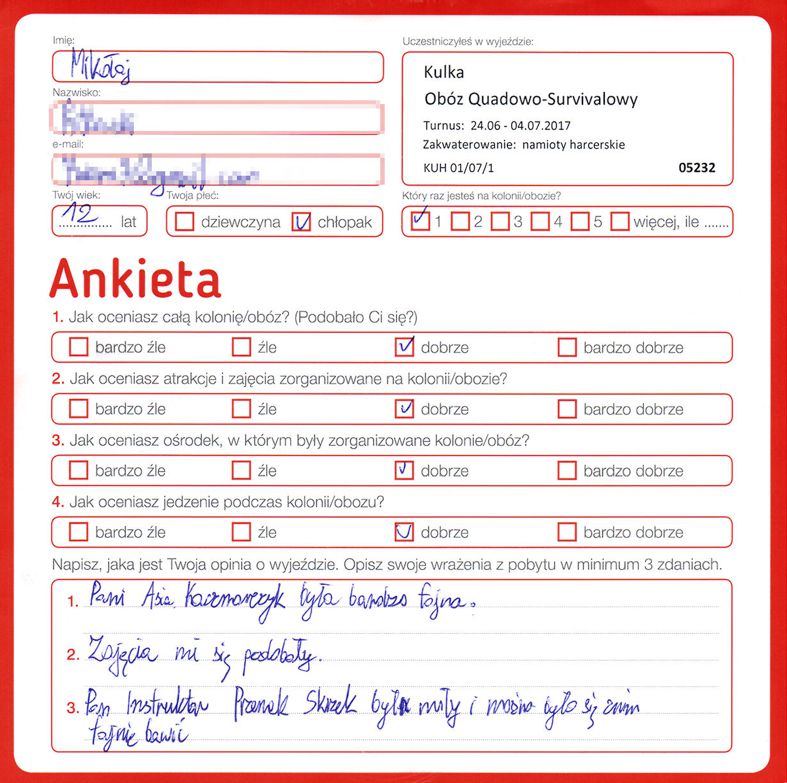 Imię:
Mikołaj
Uczestniczyłeś w wyjeździe:
Kulka
Obóz Quadowo-Survivalowy
Turnus: 24.06 - 04.07.2017
Zakwaterowanie: namioty harcerskie
KUH 01/07/1 05232
Nazwisko:
e-mail:
Twój wiek:
12 lat
Twoja płeć:
dziewczyna chłopak
Który raz jesteś na kolonii/obozie?
1 2 3 4 5 więcej, ile .......
Ankieta
1. Jak oceniasz całą kolonię/obóz? (Podobało Ci się?)
bardzo źle źle dobrze bardzo dobrze
2. Jak oceniasz atrakcje i zajęcia zorganizowane na kolonii/obozie?
bardzo źle źle dobrze bardzo dobrze
3. Jak oceniasz ośrodek, w którym były zorganizowane kolonie/obóz?
bardzo źle źle dobrze bardzo dobrze
4. Jak oceniasz jedzenie podczas kolonii/obozu?
bardzo źle źle dobrze bardzo dobrze
Napisz, jaka jest Twoja opinia o wyjeździe. Opisz swoje wrażenia z pobytu w minimum 3 zdaniach.
1. Pani Asia Kaczmarczyk była bardzo fajna.
2. Zajęcia mi się podobały.
3. Pan Instruktor Skrzek był miły i można było się znim
fajnie bawić